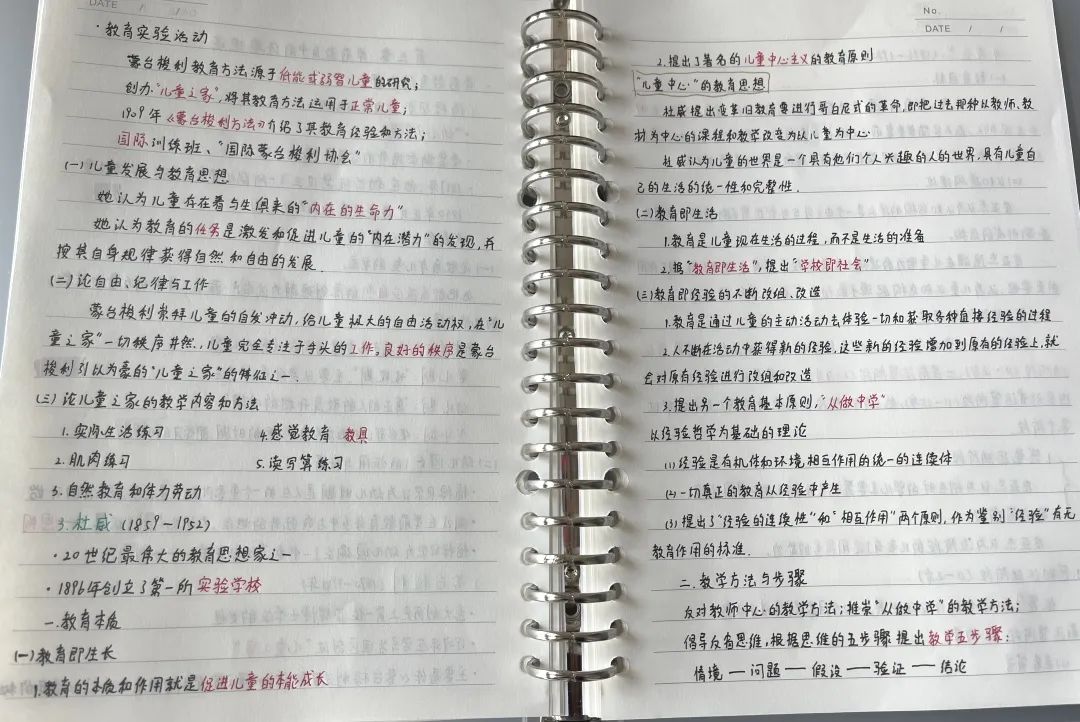 DATE / /
·教育实验活动
蒙台梭利教育方法源于低能或弱智儿童的研究；
创办"儿童之家"，将其教育方法运用于正常儿童；
1909年《蒙台梭利方法》介绍了其教育经验和方法；
国际训练班、"国际蒙台梭利协会"
(一)儿童发展与教育思想
她认为儿童存在着与生俱来的"内在的生命力"
她认为教育的任务是激发和促进儿童的"内在潜力"的发现，并
按其自身规律获得自然和自由的发展.
(二)论自由、纪律与工作
蒙台梭利崇拜儿童的自发冲动，给儿童极大的自由活动权，在"儿
童之家"一切秩序井然，儿童完全专注于手头的工作。良好的秩序是蒙台
梭利引以为豪的"儿童之家"的特征之一.
(三)论儿童之家的教学内容和方法
1.实际生活练习 4.感觉教育 教具
2.肌肉练习 5.读写算练习
3.自然教育和体力劳动
3.杜威（1859-1952）
·20世纪最伟大的教育思想家之一
·1896年创立了第一所实验学校
一.教育本质
(一)教育即生长
1.教育的本质和作用就是促进儿童的本能成长
No.
DATE / /
2.提出了著名的儿童中心主义的教育原则
"儿童中心"的教育思想
杜威提出变革旧教育要进行哥白尼式的革命，即把过去那种从教师、教
材为中心的课程和教学改变为以儿童为中心.
杜威认为儿童的世界是一个具有他们个人兴趣的人的世界，具有儿童自
己的生活的统一性和完整性.
(二)教育即生活
1.教育是儿童现在生活的过程，而不是生活的准备
2.据"教育即生活"，提出"学校即社会"
(三)教育即经验的不断改组、改造
1.教育是通过儿童的主动活动去体验一切和获取各种直接经验的过程
2.人不断在活动中获得新的经验，这些新的经验增加到原有的经验上，就
会对原有经验进行改组和改造
3.提出另一个教育基本原则，"从做中学"
以经验哲学为基础的理论
(1)经验是有机体和环境相互作用的统一的连续体
(2)一切真正的教育从经验中产生
(3)提出了"经验的连续性"和"相互作用"两个原则，作为鉴别"经验"有无
教育作用的标准.
二.教学方法与步骤
反对教师中心的教学方法；推崇"从做中学"的教学方法；
倡导反省思维，根据思维的五步骤提出教学五步骤：
情境—问题—假设—验证—结论